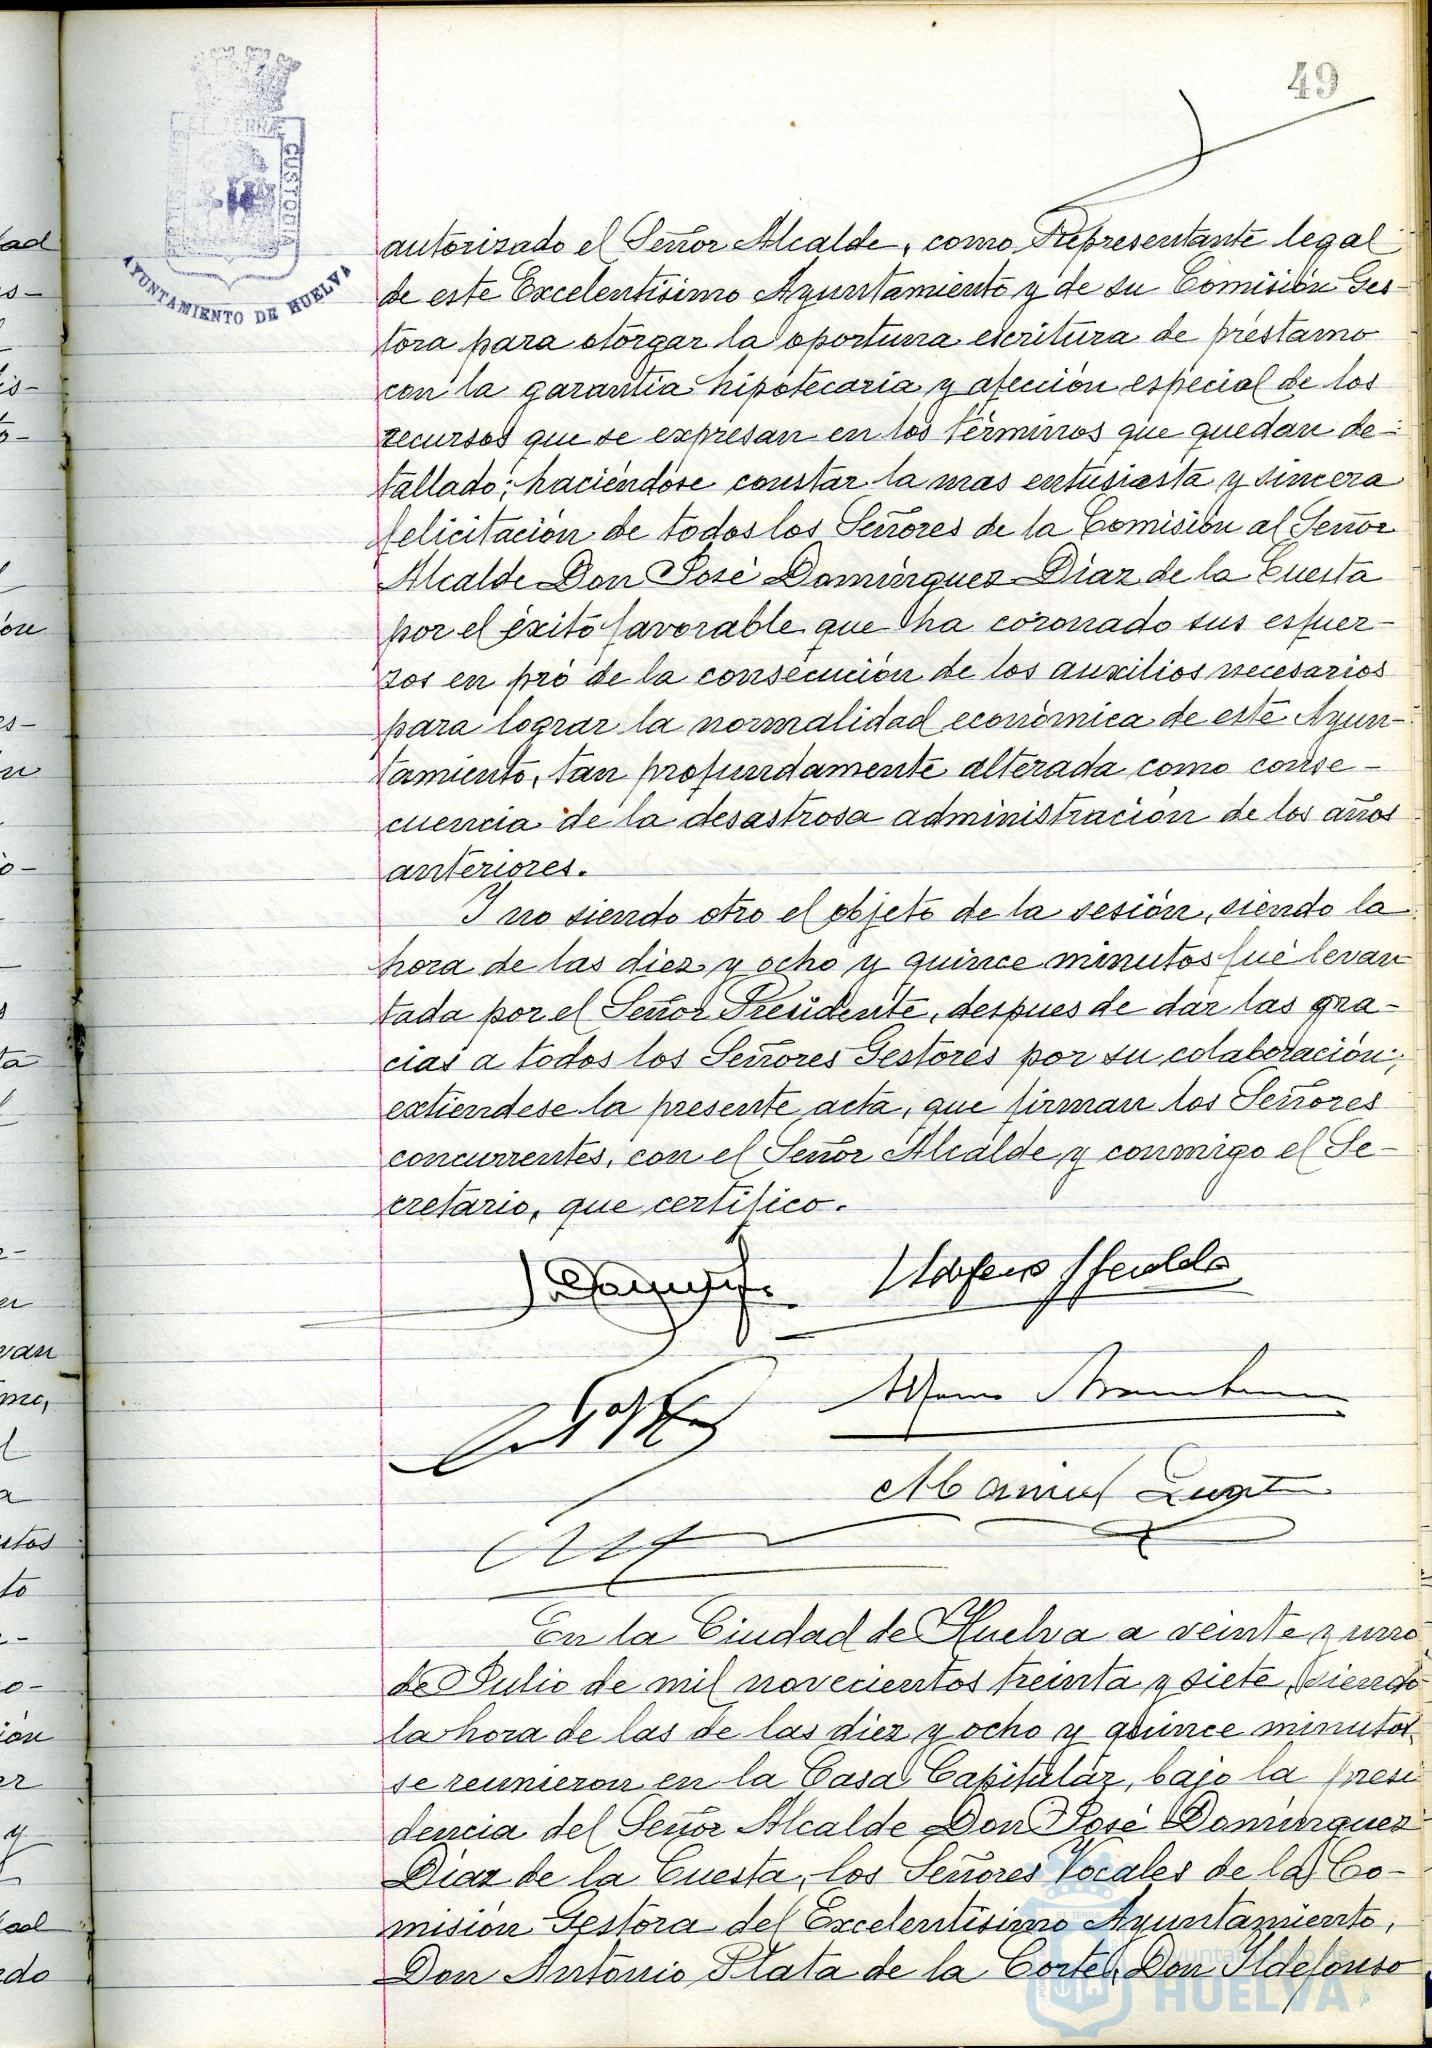 49
AYUNTAMIENTO DE HUELVA
CUSTODIA
autorizado el Señor Alcalde, como Representante legal
de este Excelentísimo Ayuntamiento y de su Comisión Ges-
tora para otorgar la oportuna escritura de préstamo
con la garantía hipotecaria y afección especial de los
recursos que se expresan en los términos que quedan de-
tallado; haciéndose constar la mas entusiasta y sincera
felicitación de todos los Señores de la Comisión al Señor
Alcalde Don José Domínguez Díaz de la Cuesta
por el éxito favorable que ha coronado sus esfuer-
zos en pró de la consecución de los auxilios necesarios
para lograr la normalidad económica de este Ayun-
tamiento, tan profundamente alterada como conse-
cuencia de la desastrosa administración de los años
anteriores.
Y no siendo otro el objeto de la sesión, siendo la
hora de las diez y ocho y quince minutos fué levan
tada por el Señor Presidente, despues de dar las gra-
cias a todos los Señores Gestores por su colaboración;
extiendese la presente acta, que firman los Señores
concurrentes, con el Señor Alcalde y conmigo el Se-
cretario, que certifico.
Manuel
En la Ciudad de Huelva a veinte y uno
de Julio de mil novecientos treinta y siete, siendo
la hora de las de las diez y ocho y quince minutos
se reunieron en la Casa Capitular, bajo la presi
dencia del Señor Alcalde Don José Domínguez
Díaz de la Cuesta, los Señores Vocales de la Co-
misión Gestora del Excelentísimo Ayuntamiento,
Don Antonio Plata de la Corte, Don Ildefonso
Ayuntamiento de
HUELVA